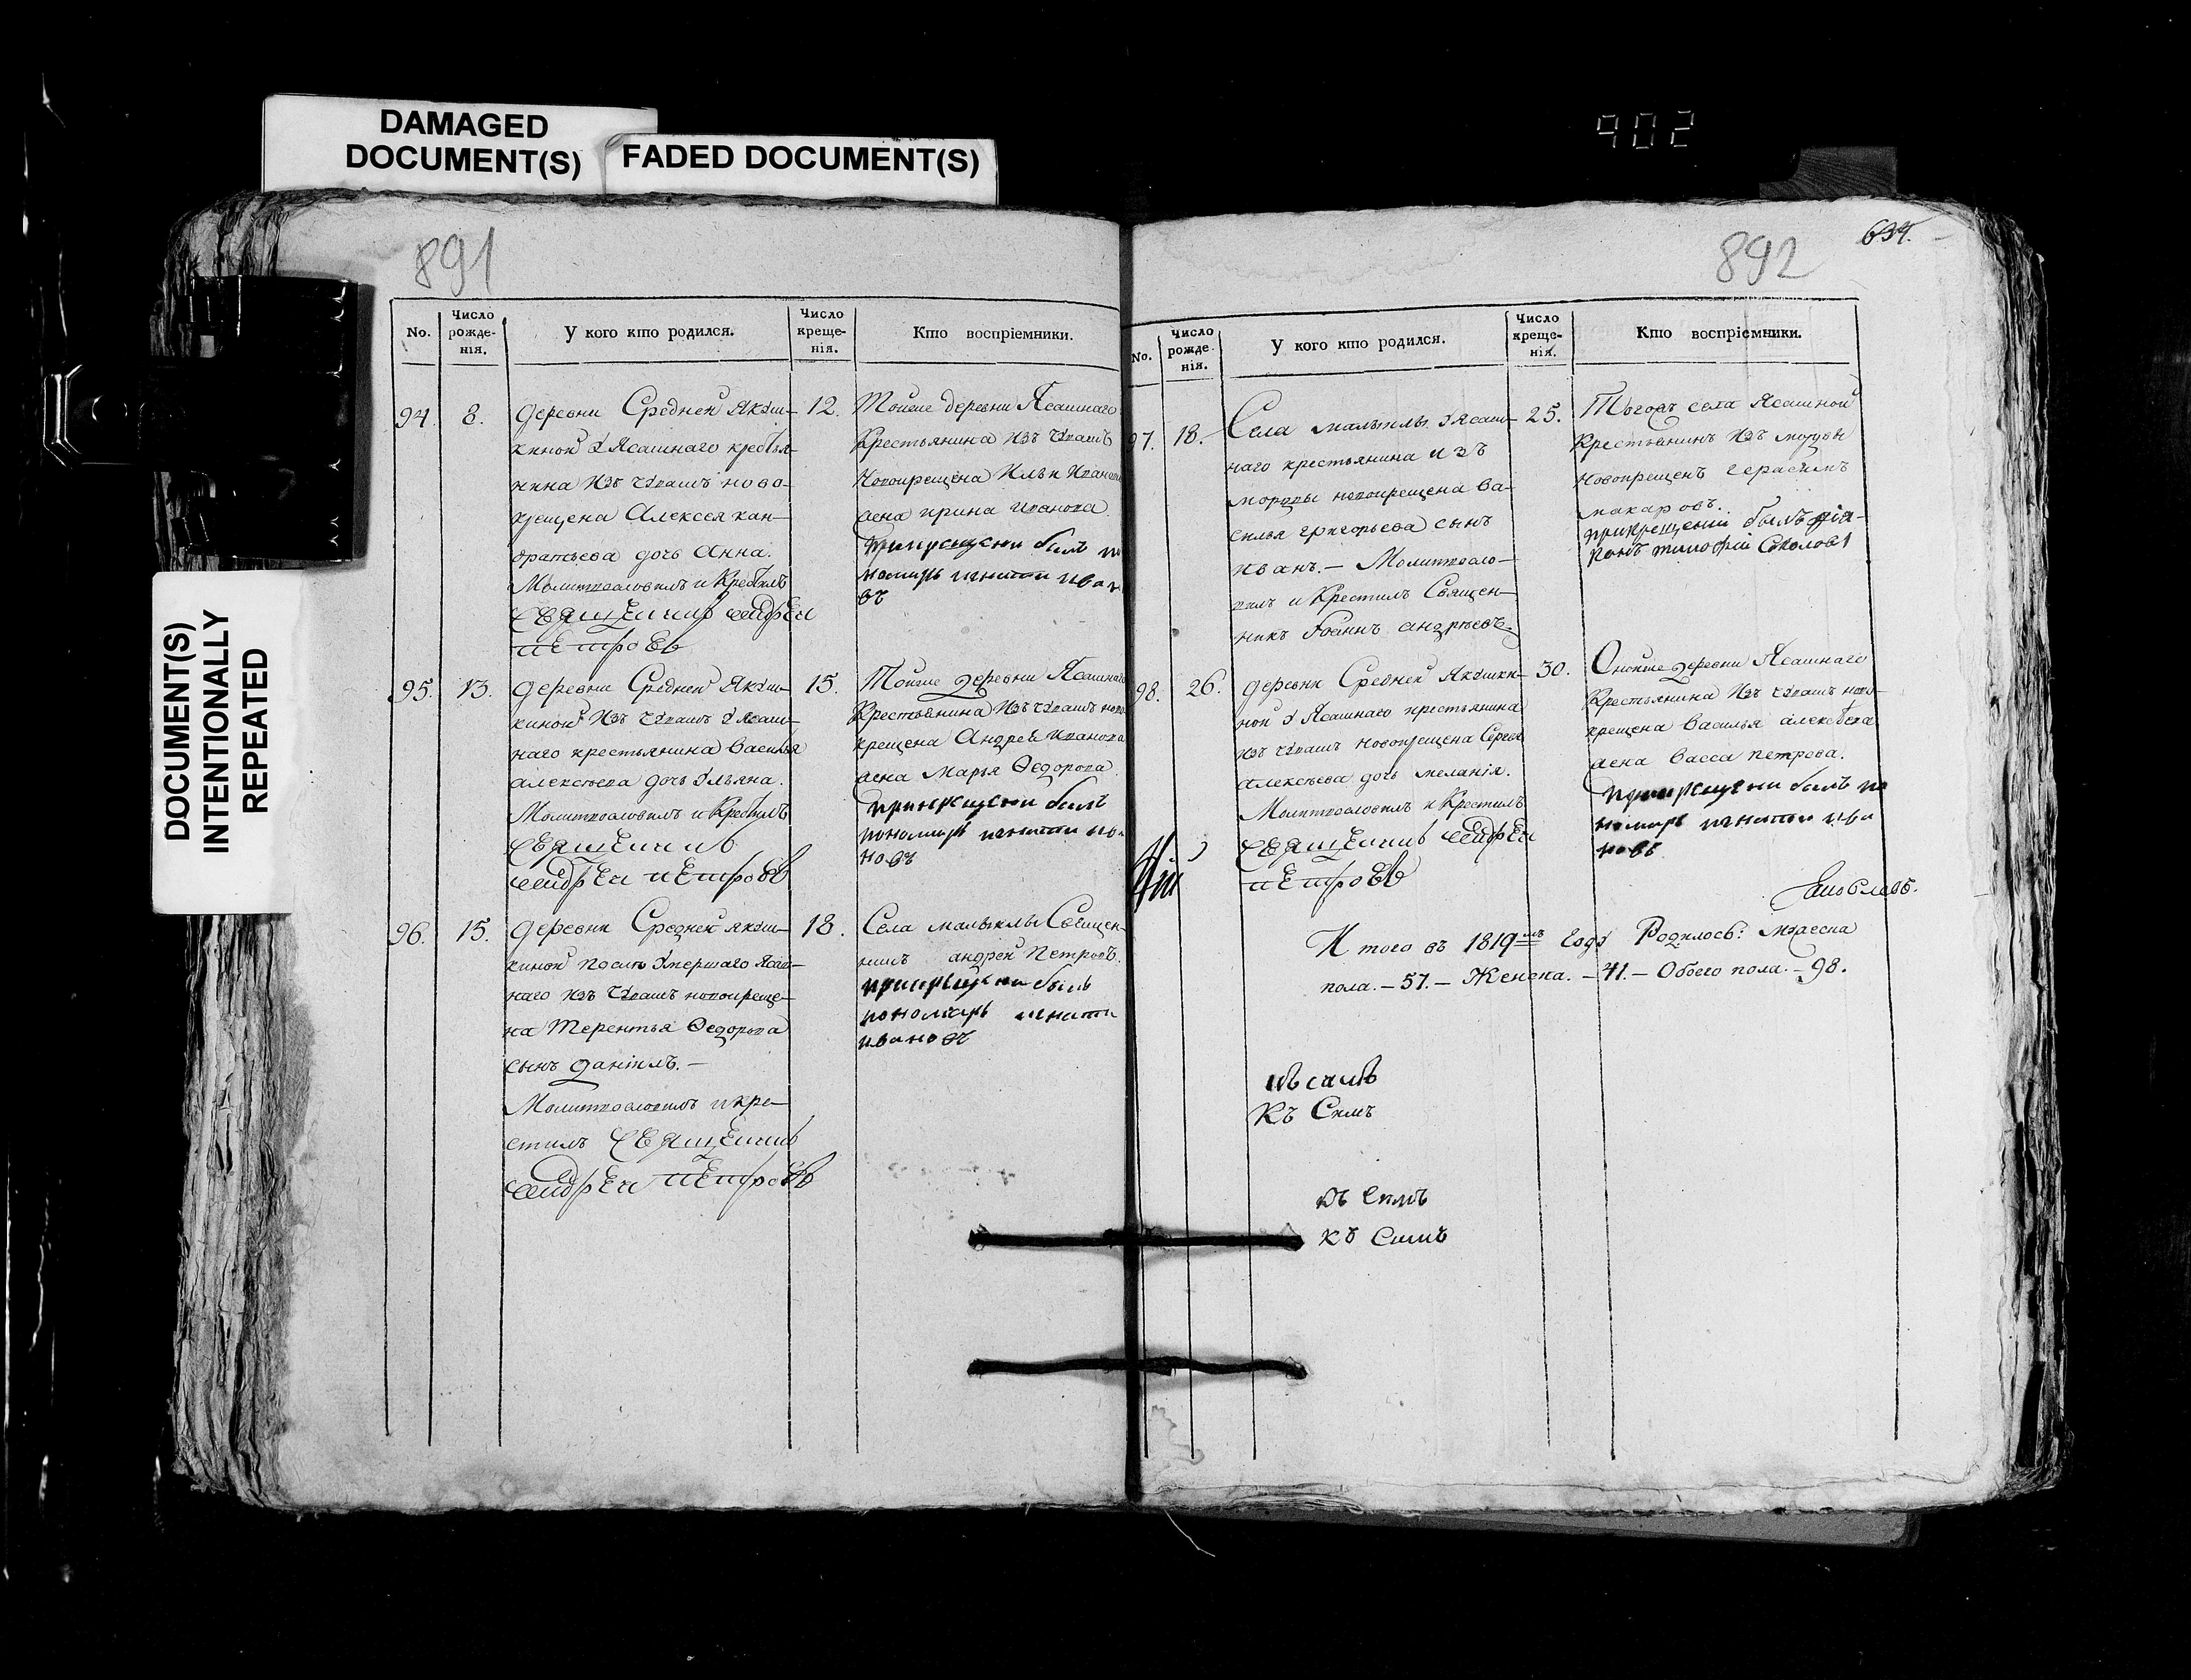 DAMAGED
DOCUMENT(S)
FADED DOCUMENT(S)
902
DOCUMENT(S)
INTENTIONALLY
REPEATED
891
No.
Число
рожде-
нія.
У кого кто родился.
Число
креще-
нія.
Кто воспріемники.
94.
8.
деревни Средней Якуш-
киной У Ясашнаго крестья-
нина Изъ Чувашъ ново-
крещена Алексея кан-
дратьева дочь Анна.
Молитвословилъ и Крестилъ
священникъ Андрей
Петровъ
12.
Тойже деревни Ясашнаго
Крестьянина Изъ Чувашъ
Новокрещена Ильи Иванова
жена ирина иванова
при крещени былъ по
номарь игнати ивано
въ
95.
13.
деревни Средней Якуш-
киной Изъ Чувашъ У Ясаш-
наго крестьянина Василья
алексеева дочь Ульяна.
Молитвословилъ и Крестилъ
священникъ
Андрей Петровъ
15.
Тойже деревни Ясашнаго
Крестьянина Изъ Чувашъ ново
крещена Андрея Иванова
жена Марья Ѳедорова
при крещени былъ
пономарь игнати ива
новъ
96.
15.
деревни Средней якуш-
киной После Умершаго Ясаш-
наго Изъ Чувашъ новокреще-
на Терентья Ѳедорова
сынъ даніилъ. -
Молитвословилъ и кре-
стилъ священникъ
Андрей Петровъ
18.
Села малыклы Священ-
никъ андрей Петровъ.
при крещени былъ
пономарь игнати
ивановъ
892
634.
No.
Число
рожде-
нія.
У кого кто родился.
Число
креще-
нія.
Кто воспріемники.
97.
18.
Села малыклы У Ясаш-
наго крестьянина изъ
мордвы новокрещена Ва-
силья григорьева сынъ
иванъ. - Молитвосло-
вилъ и Крестилъ Священ-
никъ Іоаннъ андреевъ.
25.
Тогожъ села Ясашной
Крестьянинъ Изъ мордвы
Новокрещенъ герасимъ
макаровъ.
при крещении былъ діа-
конъ тимофій Соколовъ
98.
26.
деревни Средней Якушки-
ной У Ясашнаго крестьянина
Изъ Чувашъ Новокрещена Сергея
алексеева дочь меланія.
Молитвословилъ и Крестилъ
священникъ Андрей
Петровъ
30.
Оной же деревни Ясашнаго
Крестьянина Изъ Чувашъ ново-
крещена Василья алексеева
жена Васса петрова.
при крещени былъ по
номарь игнати ива
новъ
Итого въ 1819мъ Году Родилось: Мужеска
пола. - 57. - Женска. - 41. - Обоего пола. - 98.
Къ Симъ
къ Симъ